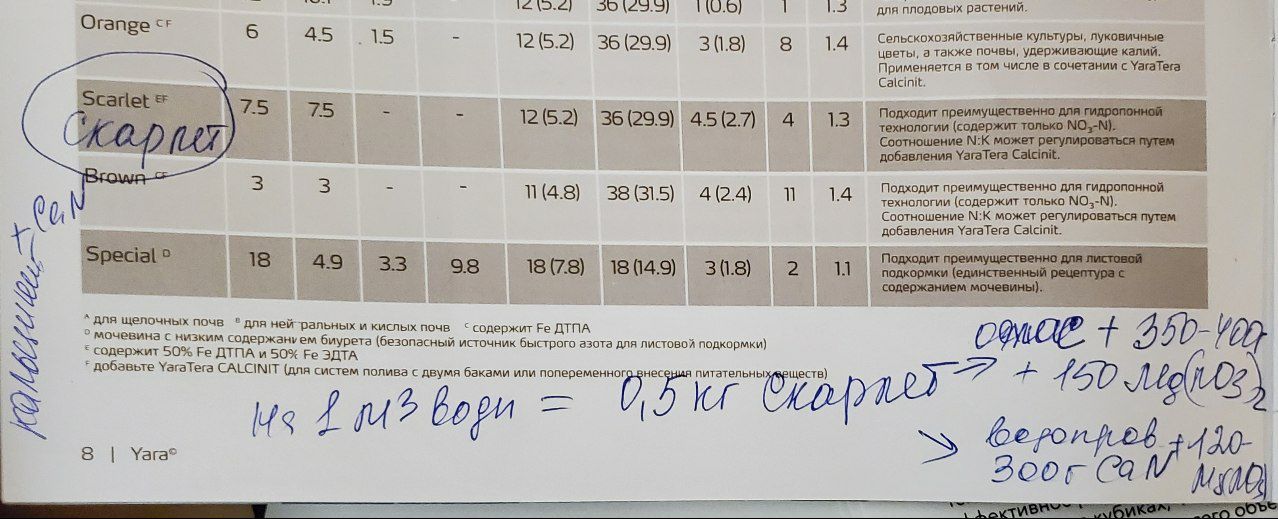 12 (5.2) 36 (29.9) 1 (0.6) 1 1.3 для плодовых растений.
Orange CF 6 4.5 1.5 - 12 (5.2) 36 (29.9) 3 (1.8) 8 1.4 Сельскохозяйственные культуры, луковичные
цветы, а также почвы, удерживающие калий.
Применяется в том числе в сочетании с YaraTera
Calcinit.
Scarlet EF 7.5 7.5 - - 12 (5.2) 36 (29.9) 4.5 (2.7) 4 1.3 Подходит преимущественно для гидропонной
технологии (содержит только NO3-N).
Соотношение N:K может регулироваться путем
добавления YaraTera Calcinit.
Скарлет
Brown CF 3 3 - - 11 (4.8) 38 (31.5) 4 (2.4) 11 1.4 Подходит преимущественно для гидропонной
технологии (содержит только NO3-N).
Соотношение N:K может регулироваться путем
добавления YaraTera Calcinit.
Special D 18 4.9 3.3 9.8 18 (7.8) 18 (14.9) 3 (1.8) 2 1.1 Подходит преимущественно для листовой
подкормки (единственный рецептура с
содержанием мочевины).
+ CaN
A для щелочных почв B для ней ральных и кислых почв C содержит Fe ДТПА
D мочевина с низким содержанием биурета (безопасный источник быстрого азота для листовой подкормки)
E содержит 50% Fe ДТПА и 50% Fe ЭДТА
F добавьте YaraTera CALCINIT (для систем полива с двумя баками или попеременного внесения питательных веществ)
осмос + 350-400г
+ 150 Mg(NO3)2
На 1 м3 води = 0,5 кг Скарлет
водопров + 120-
300г CaN MgNO3
8 | Yara©